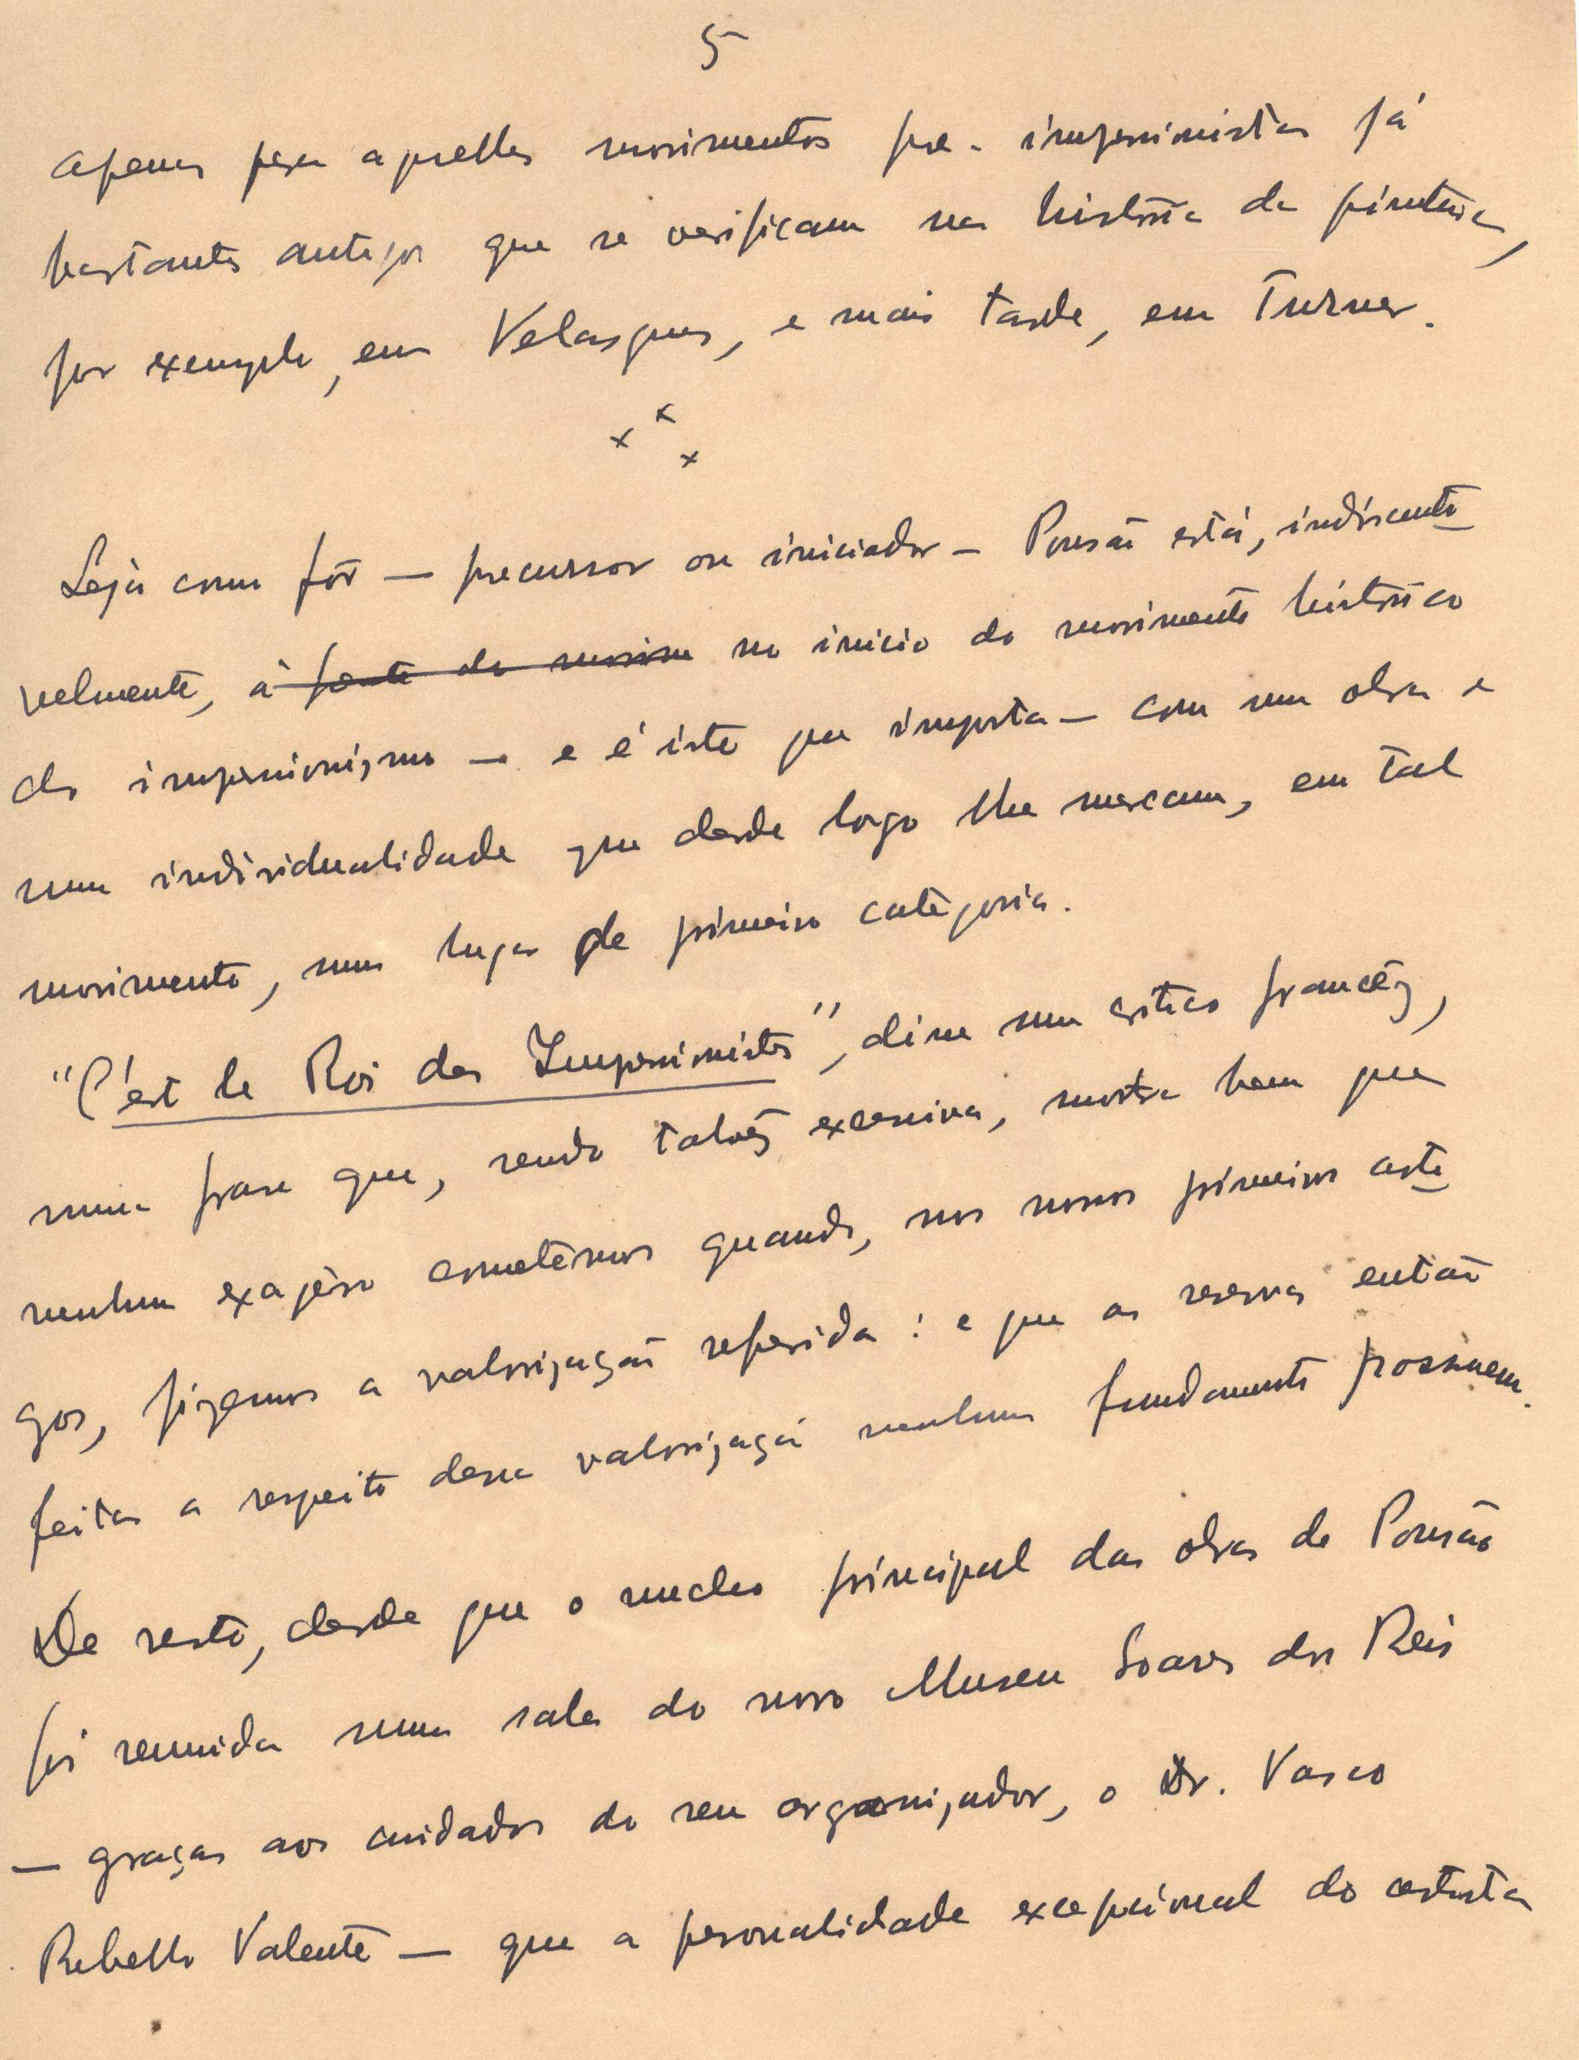 5
apenas para aquelles movimentos pre-impressionistas já
bastantes antigos que se verificam na história da pintura,
por exemplo, em Velasques, e mais tarde, em Turner.
x x x
Seja como fôr — precursor ou iniciador — Pousão está, indiscuti
velmente, à frente do movim no inicio do movimento histórico
do impressionismo — e é isto que importa — com uma obra e
uma individualidade que desde logo lhe marcam, em tal
movimento, um lugar de primeira categoria.
"C'est le Roi des Impressionistes", disse um critico francêz,
numa frase que, sendo talvêz excessiva, mostra bem que
nenhum exagêro cometêmos quando, nos nossos primeiros arti
gos, fizemos a valorização referida: e que as reservas então
feitas a respeito dessa valorização nenhum fundamento possuem.
De resto, desde que o nucleo principal das obras de Pousão
foi reunida numa sala do novo Museu Soares dos Reis
— graças aos cuidados do seu organizador, o Dr. Vasco
Rebello Valente — que a personalidade excepcional do artista